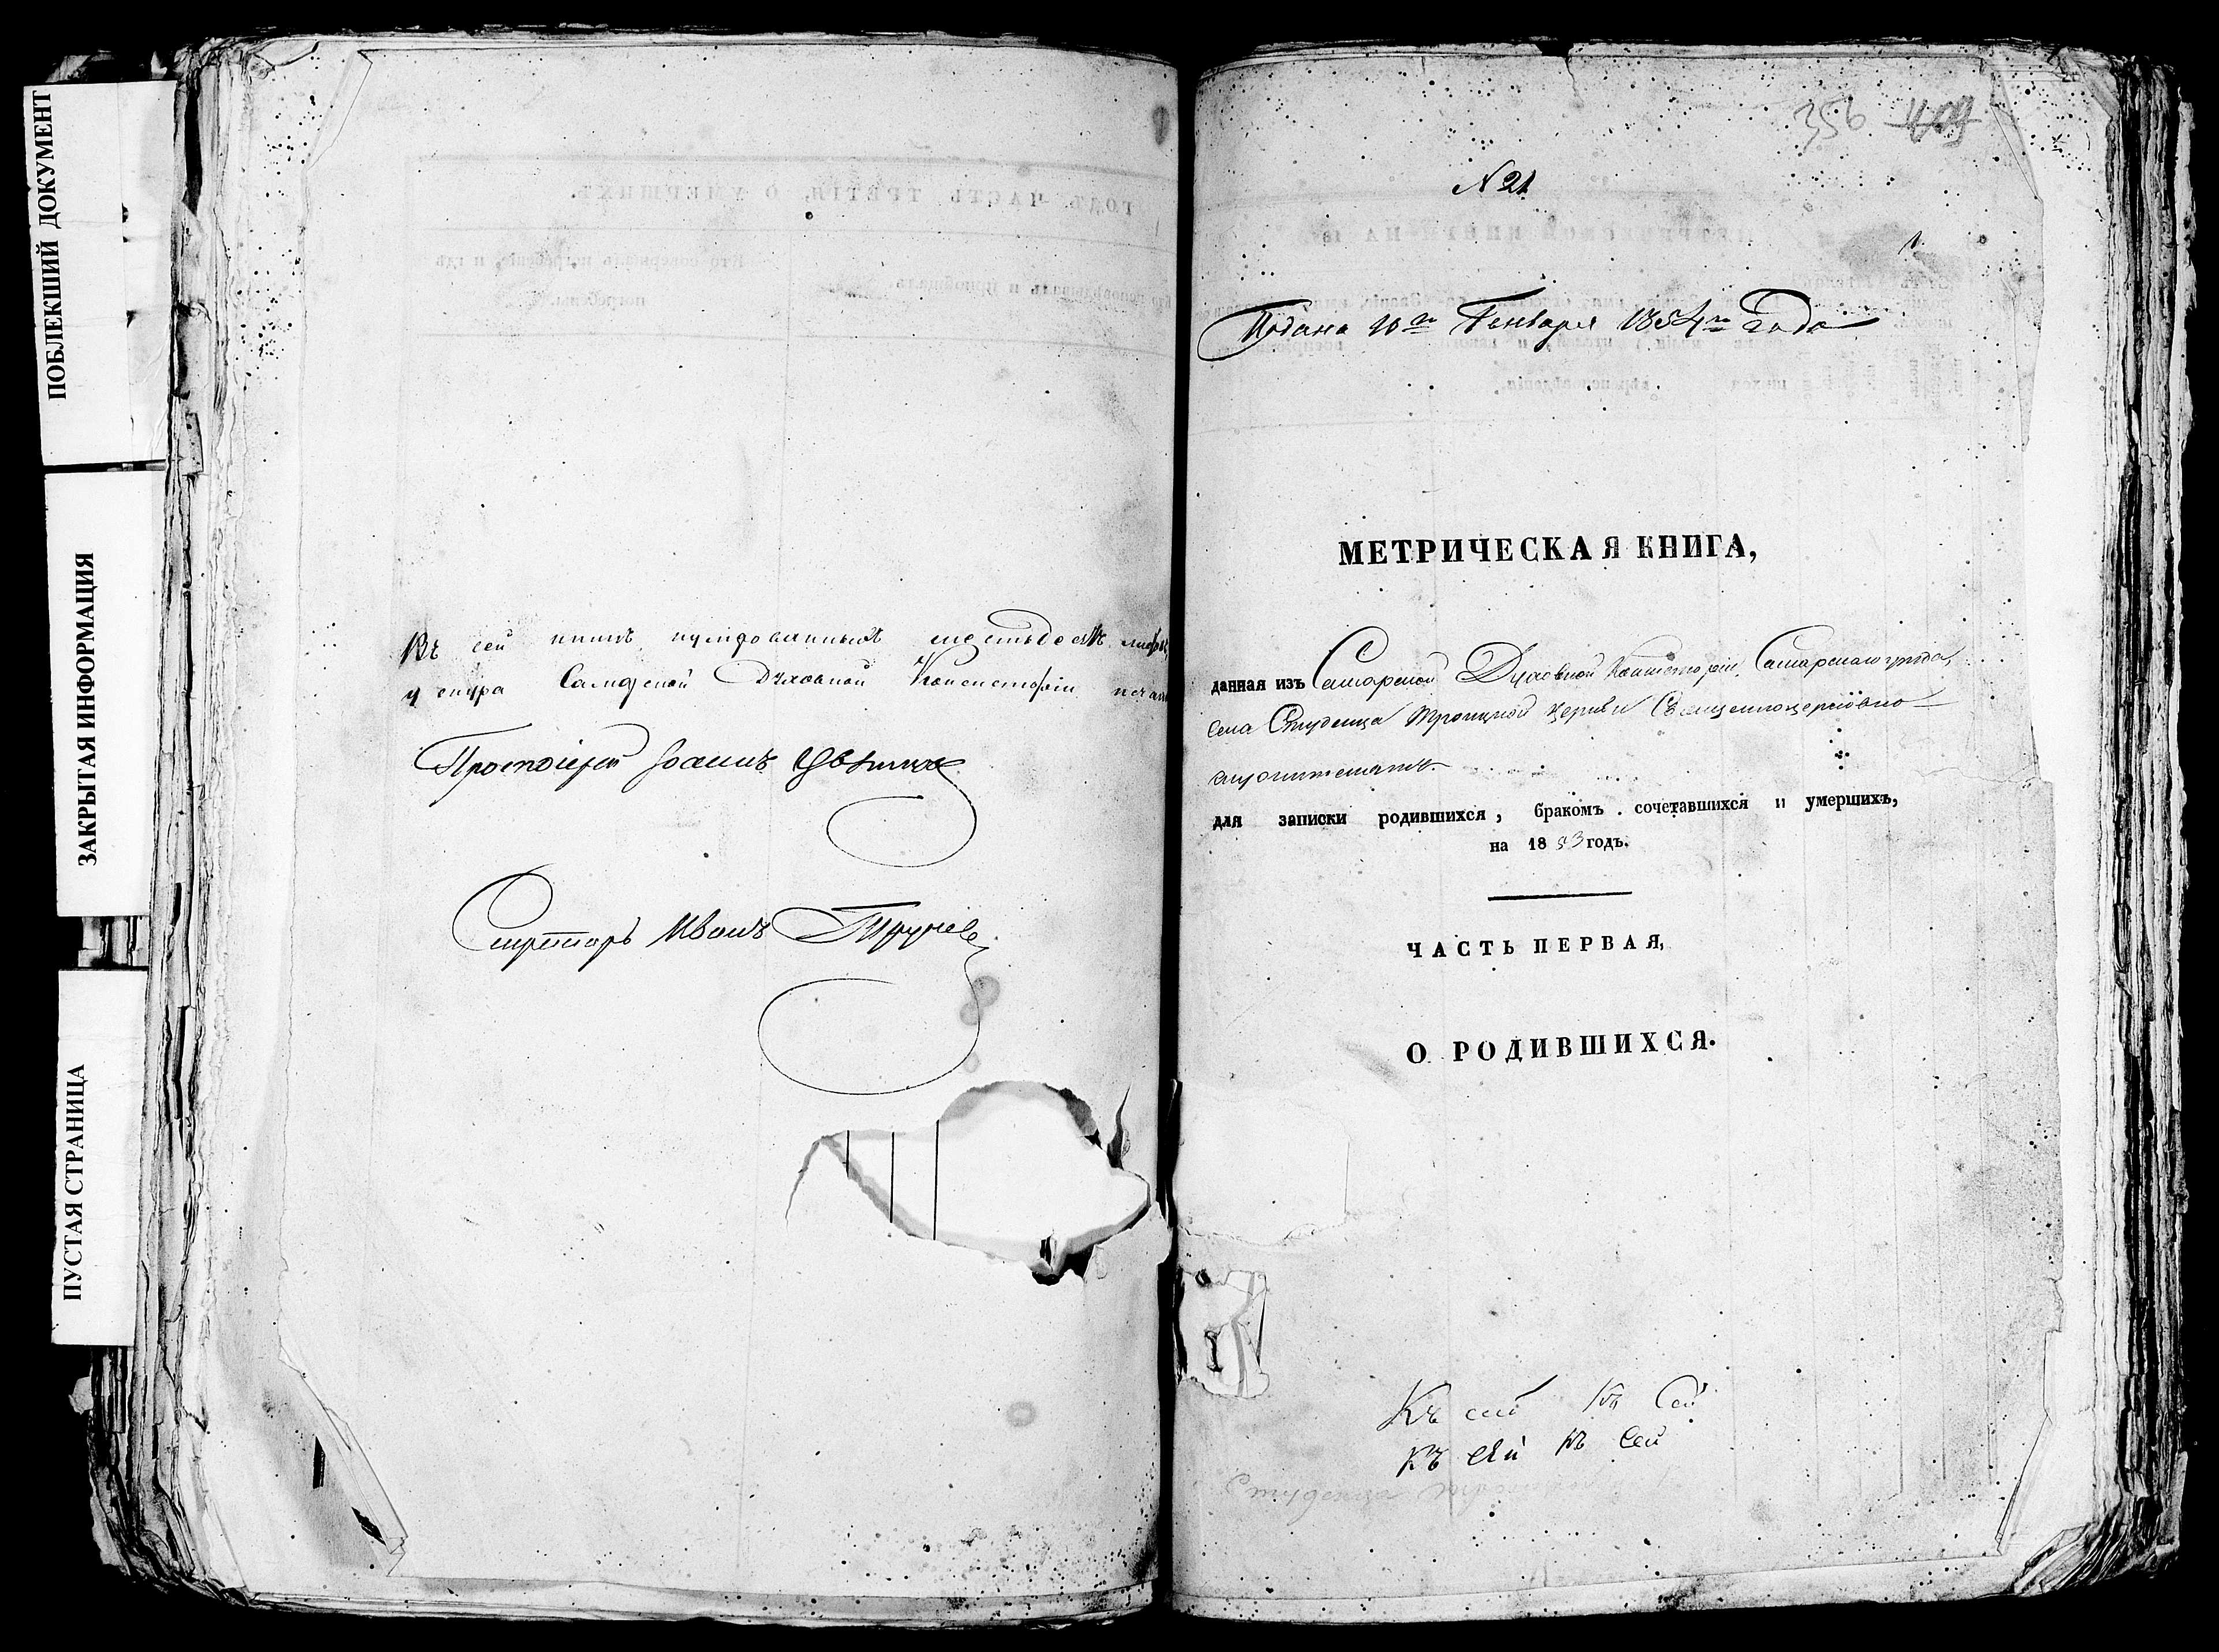 ПОБЛЕКШИЙ ДОКУМЕНТ
ЗАКРЫТАЯ ИНФОРМАЦИЯ
ПУСТАЯ СТРАНИЦА
ГОДЪ ЧАСТЬ ТРЕТІЯ, О УМЕРШИХЪ.
Въ сей книгѣ нумерованныхъ шестьдесятъ листовъ,
у снура Самарской Духовной Консисторіи печать
Протоіерей Іоаннъ
Секретарь Иванъ
356 409
N 21
1.
Подана 10го Генваря 1854го Года
МЕТРИЧЕСКАЯ КНИГА,
данная изъ Самарской Духовной Консисторіи, Самарскаго уѣзда,
села Студенца Троицкой церкви Священноцерковно-
служителямъ
для записки родившихся, бракомъ сочетавшихся и умершихъ,
на 1853 годъ.
ЧАСТЬ ПЕРВАЯ,
О РОДИВШИХСЯ.
Къ сей Къ Сей
къ сей къ сей
Студенца